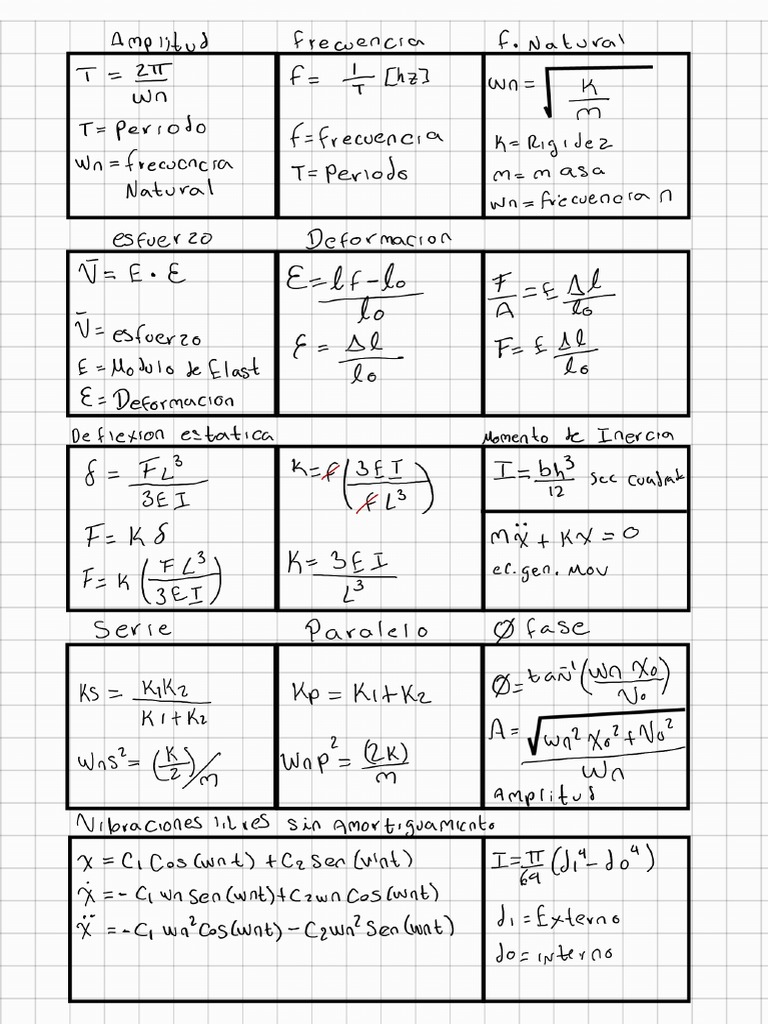 Amplitud
T = 2π/wn
T = Periodo
wn = frecuencia
Natural
frecuencia
f = 1/T [hz]
f = frecuencia
T = Periodo
f. Natural
wn = √(K/m)
K = Rigidez
m = masa
wn = friecuencia n
esfuerzo
σ̄ = E · ε
σ̄ = esfuerzo
E = Modulo de Elast
ε = Deformacion
Deformacion
ε = (lf - lo)/lo
ε = Δl/lo
F/A = E Δl/lo
F = E Δl/lo
Deflexion estatica
δ = FL³/3EI
F = K δ
F = K (FL³/3EI)
K = F (3EI/FL³)
K = 3EI/L³
Momento de Inercia
I = bh³/12 sec cuadrada
mẍ + Kx = 0
ec. gen. Mov
Serie
Ks = K1K2/(K1+K2)
wns² = (K/2)/m
Paralelo
Kp = K1+K2
wnp² = (2K)/m
Ø fase
Ø = tan⁻¹ (wn x0/v0)
A = √(wn² x0² + v0²)/wn
Amplitud
Vibraciones libres sin Amortiguamiento
x = C1 Cos(wnt) + C2 Sen(wnt)
ẋ = - C1 wn Sen(wnt) + C2wn Cos(wnt)
ẍ = - C1 wn² Cos(wnt) - C2wn² Sen(wnt)
I = π/64 (d1⁴ - do⁴)
d1 = Externo
do = interno